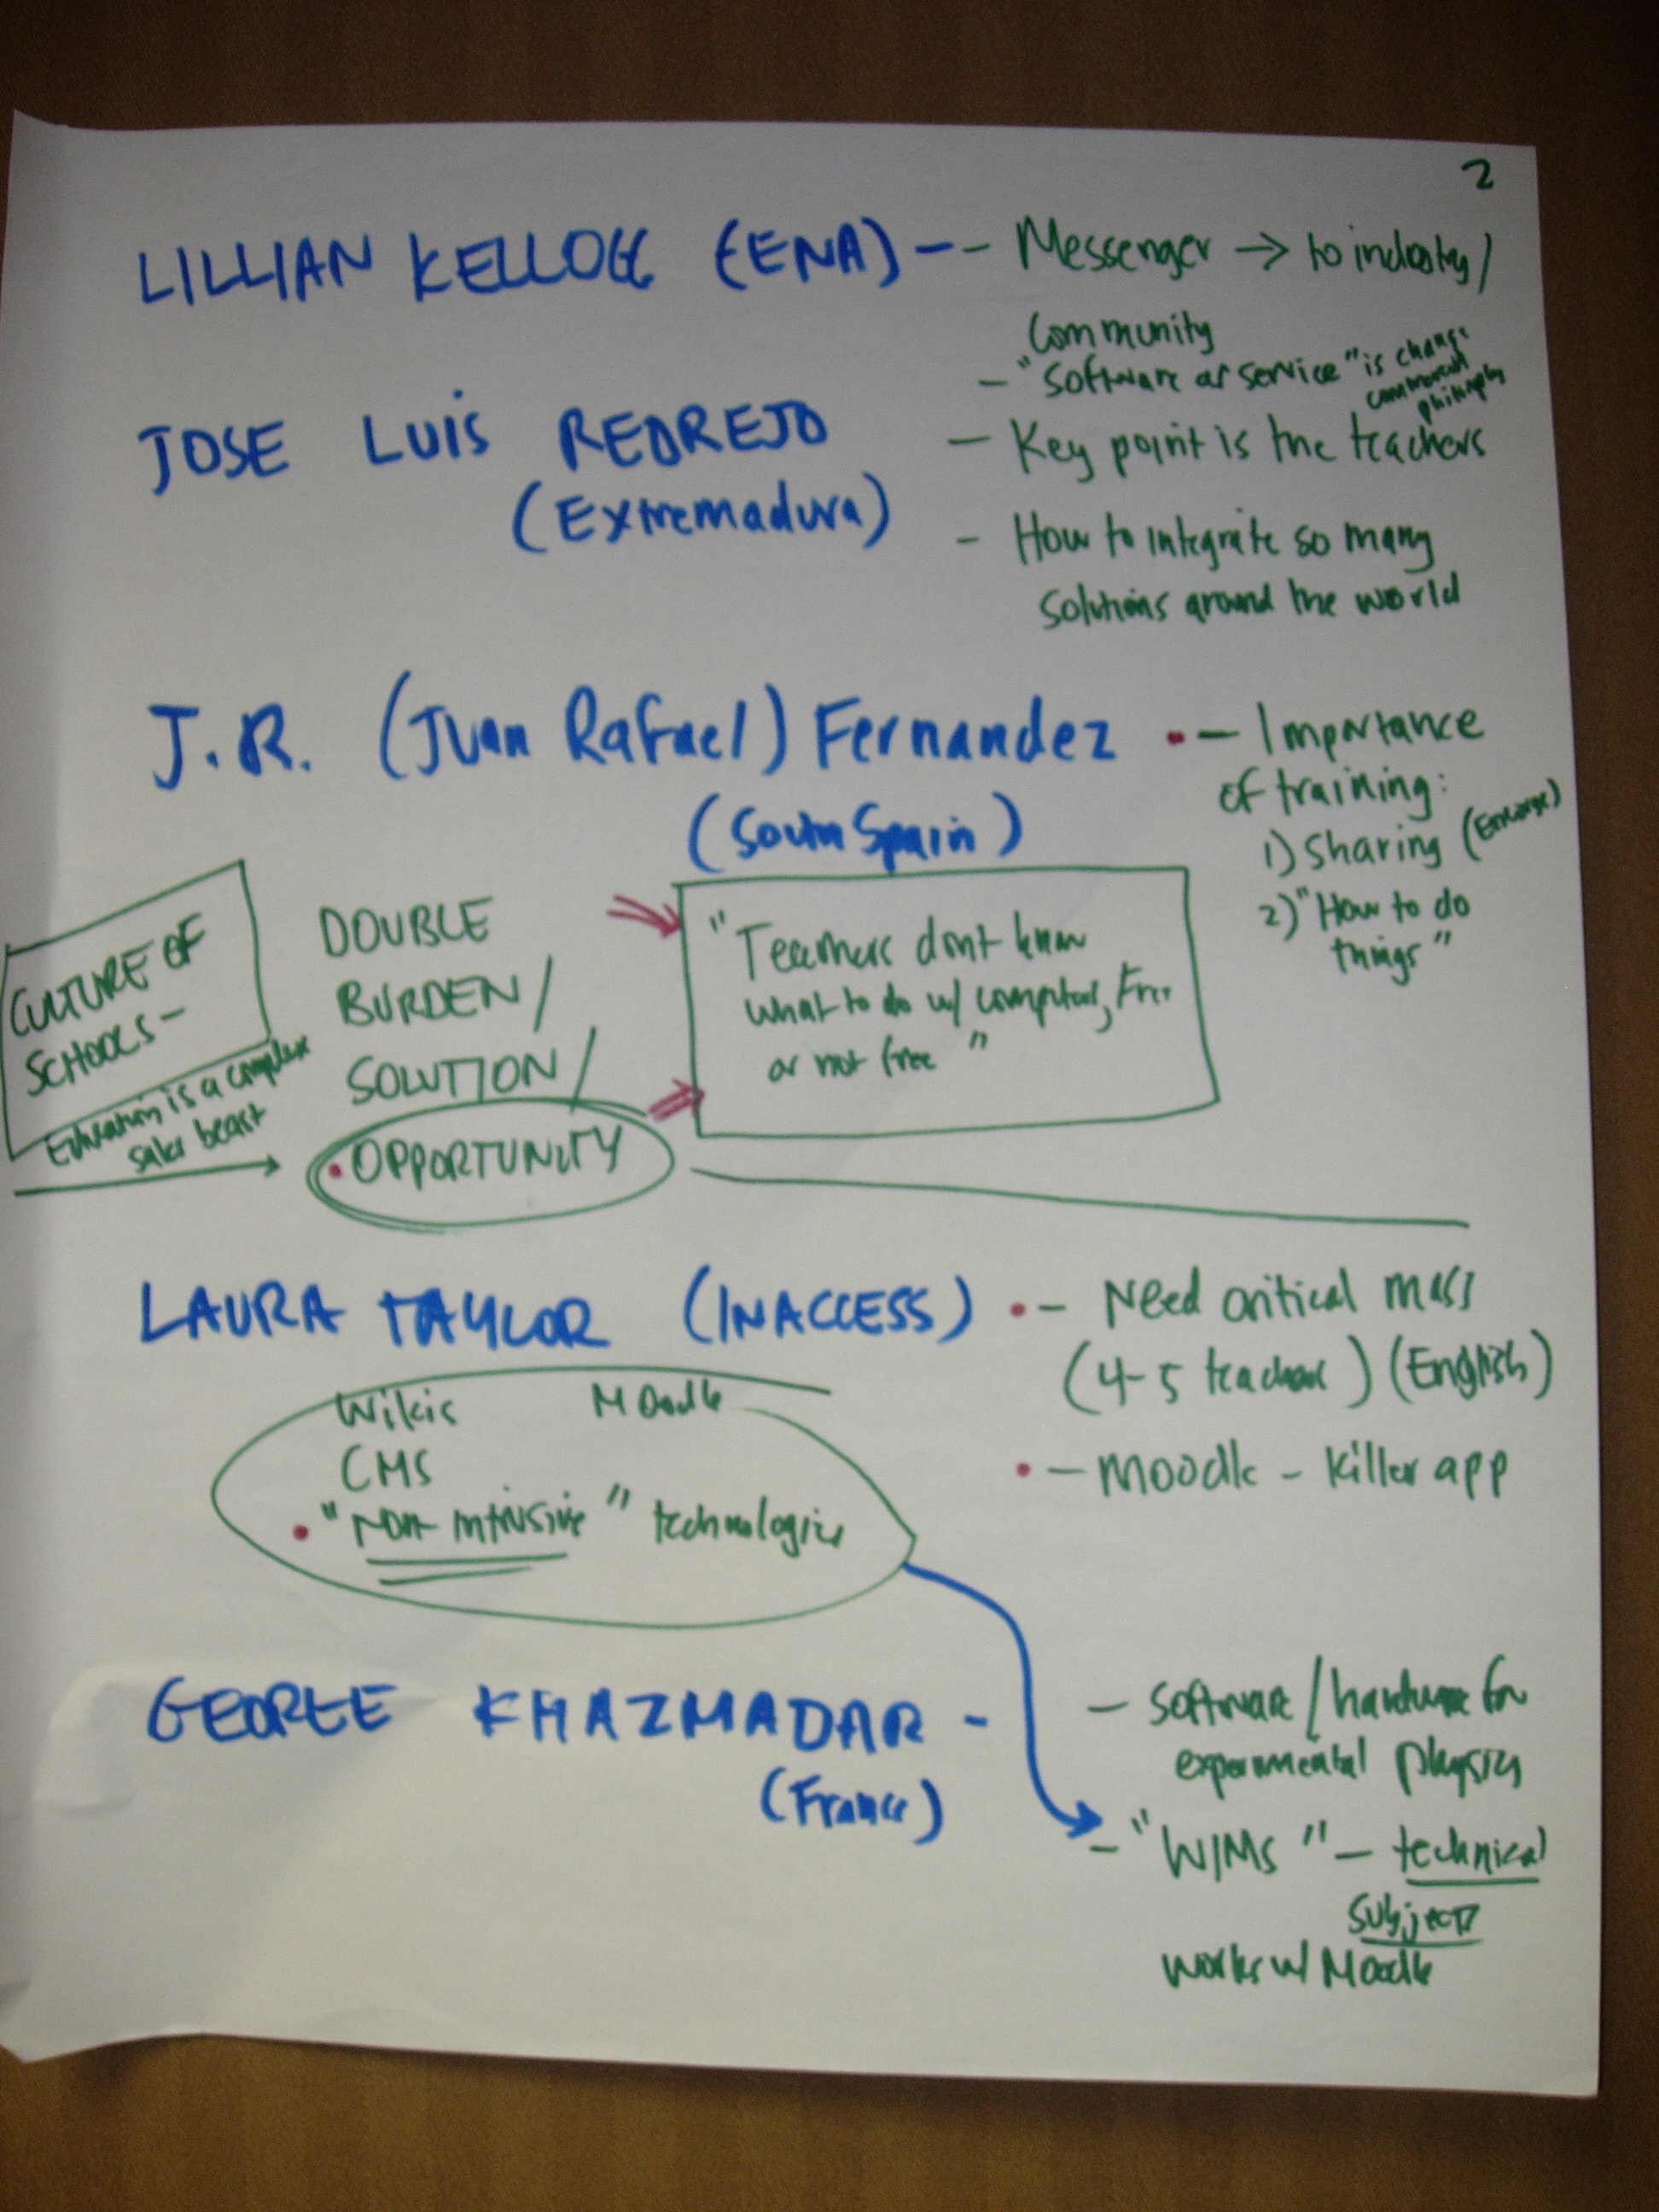 2
LILLIAN KELLOGG (ENA) -- Messenger → to industry/
community
- "Software as service" is change
commercial
philosophy
JOSE LUIS REDREJO
(Extremadura)
- Key point is the teachers
- How to integrate so many
solutions around the world
J.R. (Juan Rafael) Fernandez
(South Spain)
• - Importance
of training:
1) Sharing
2) "How to do
things"
CULTURE OF
SCHOOLS -
Education is a complex
sales beast
DOUBLE
BURDEN/
SOLUTION/
• OPPORTUNITY
"Teachers dont know
what to do w/ computers, Free
or not free"
LAURA TAYLOR (INACCESS)
• - Need critical mass
(4-5 teachers) (English)
• - Moodle - Killer app
Wikis Moodle
CMS
• "Non intrusive" technologies
GEORGE KHAZMADAR -
(France)
- Software/hardware for
experimental physics
- "WIMS" - technical
subjects
works w/ Moodle